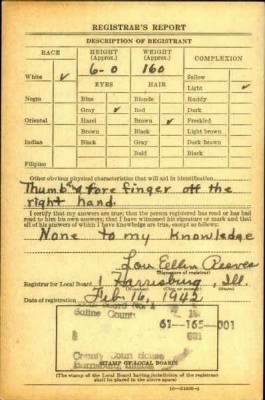 REGISTRAR'S REPORT
DESCRIPTION OF REGISTRANT
RACE HEIGHT (Approx.) WEIGHT (Approx.) COMPLEXION
6-0 160 Sallow
White ✓ EYES HAIR Light ✓
Negro Blue Blonde Ruddy
Gray ✓ Red Dark
Oriental Hazel Brown ✓ Freckled
Brown Black Light brown
Indian Black Gray Dark brown
Bald Black
Filipino
Other obvious physical characteristics that will aid in identification
Thumb & fore finger off the
right hand.
I certify that my answers are true; that the person registered has read or has had
read to him his own answers; that I have witnessed his signature or mark and that
all of his answers of which I have knowledge are true, except as follows:
None to my knowledge
Lou Ellen Reeves
(Signature of registrar)
Registrar for Local Board 1 Harrisburg, Ill.
Date of registration Feb. 16, 1942
Saline County
61-165-001
County Court House
Harrisburg, Illinois
STAMP OF LOCAL BOARD
(The stamp of the Local Board having jurisdiction of the registrant
shall be placed in the above space)